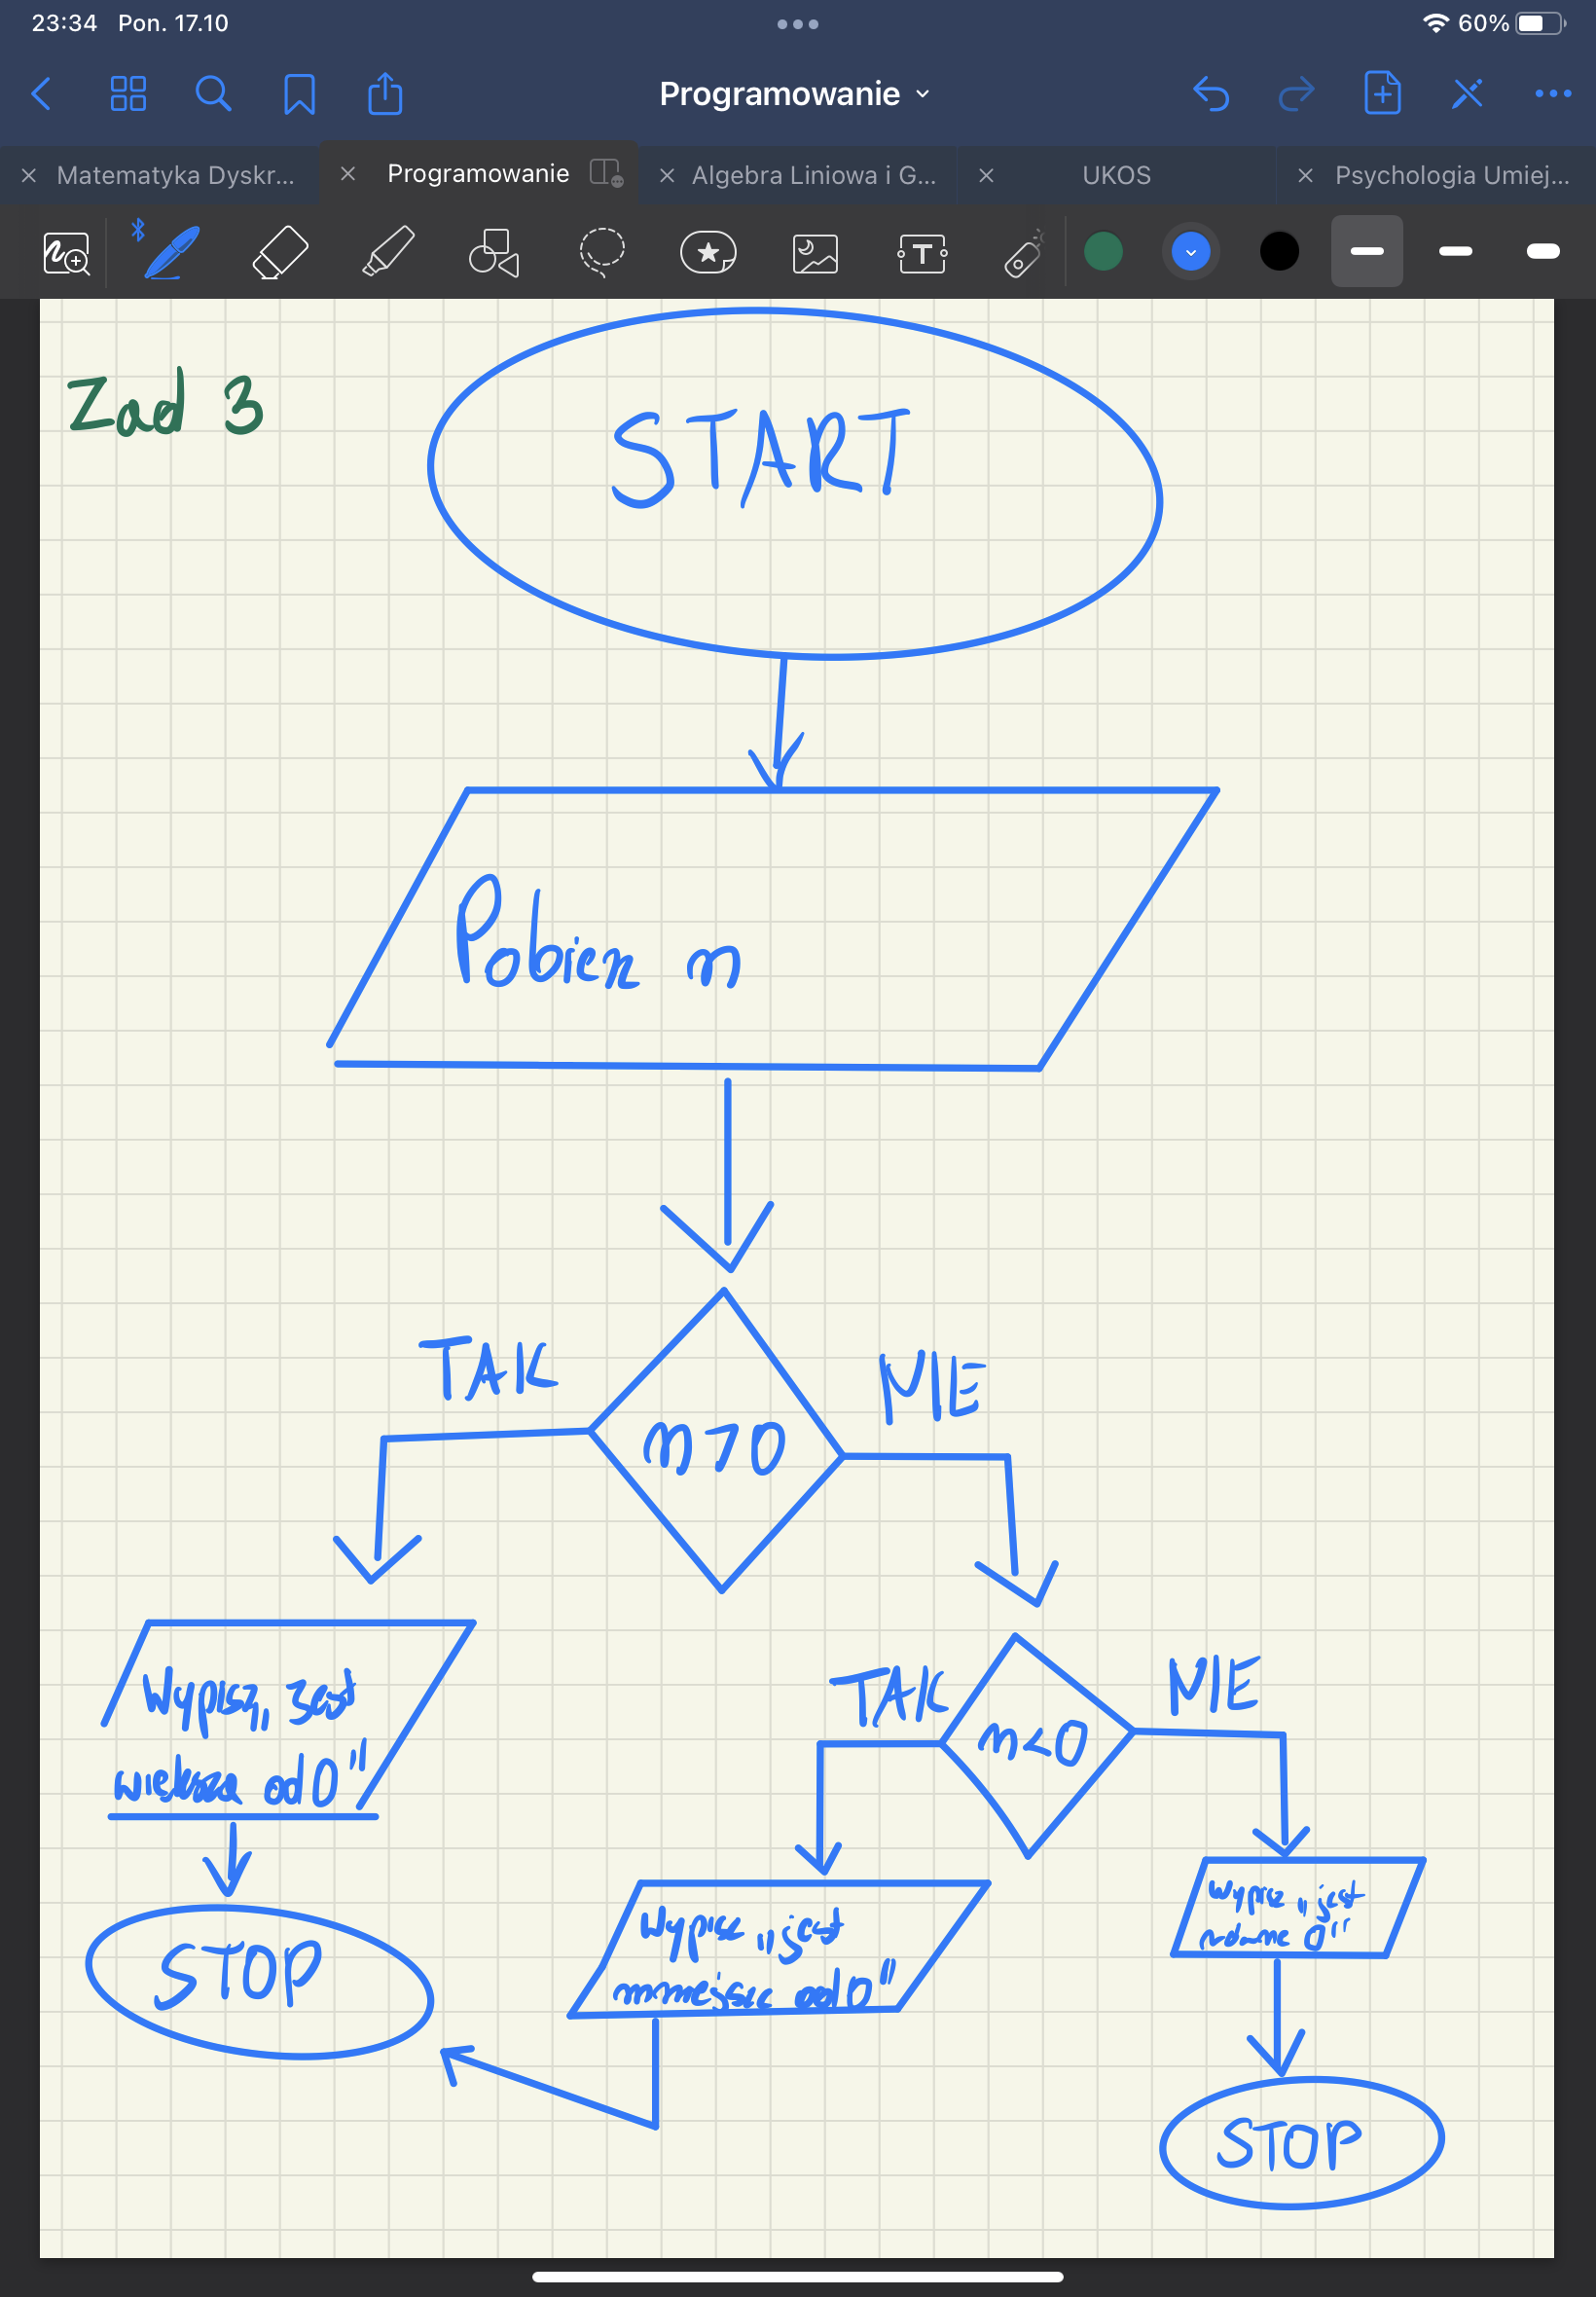 23:34 Pon. 17.10
60%
Programowanie
Matematyka Dyskr...
Programowanie
Algebra Liniowa i G...
UKOS
Psychologia Umiej...
T
Zad 3
START
Pobierz n
TAK
NIE
n>0
Wypisz „jest
większe od 0"
TAK
NIE
n<0
STOP
Wypisz „jest
mniejsze od 0"
Wypisz „jest
równe 0"
STOP